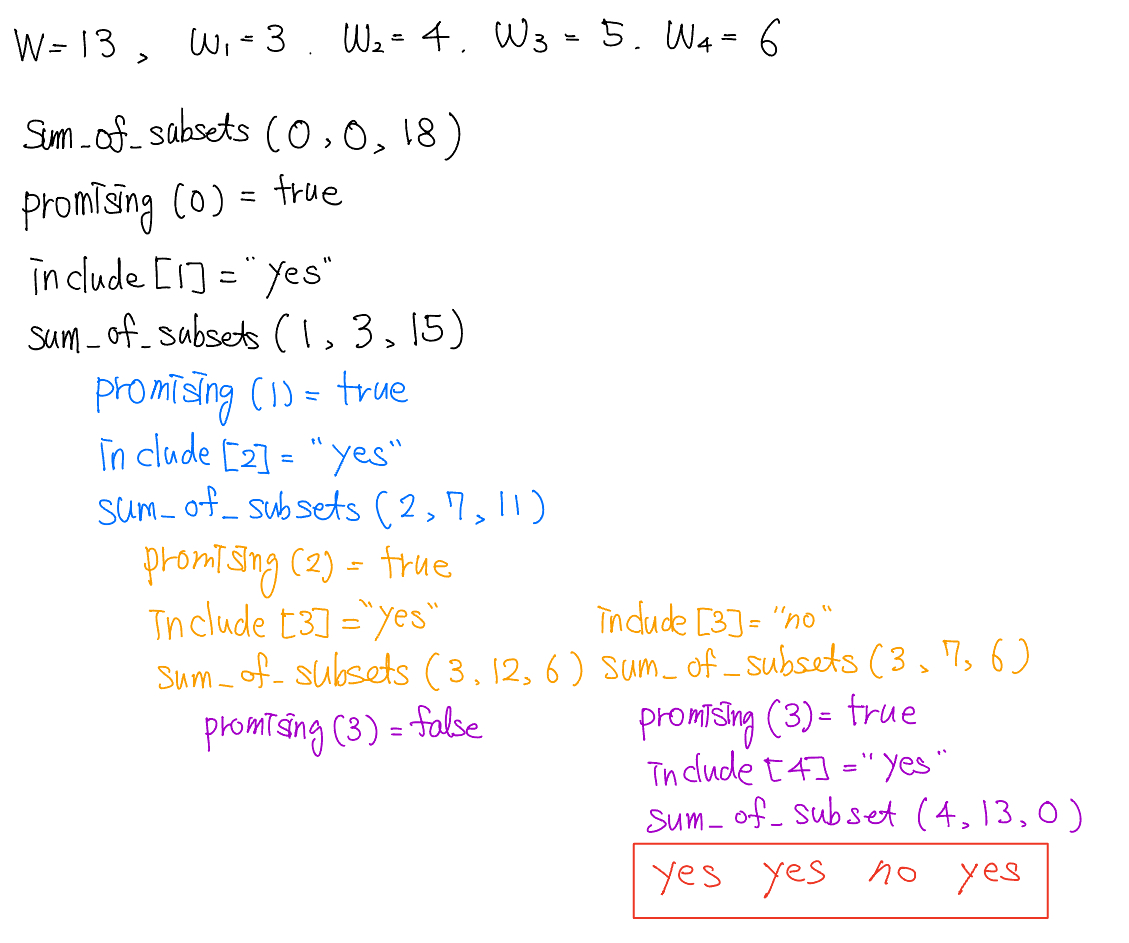 W=13, W1=3. W2=4. W3=5. W4=6
Sum_of_subsets (0,0,18)
promising (0) = true
include [1] = "yes"
sum_of_subsets (1,3,15)
promising (1) = true
include [2] = "yes"
sum_of_subsets (2,7,11)
promising (2) = true
Include [3] = "yes"
sum_of_subsets (3,12,6)
promising (3) = false
include [3] = "no"
sum_of_subsets (3,7,6)
promising (3) = true
include [4] = "yes"
sum_of_subset (4,13,0)
yes yes no yes